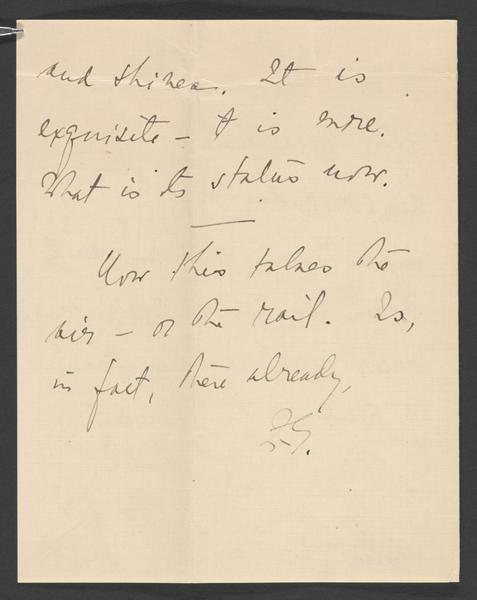 and shines. It is
exquisite – & is more.
What is its status now.
Now this takes the
air – or the rail. Is,
in fact, there already,